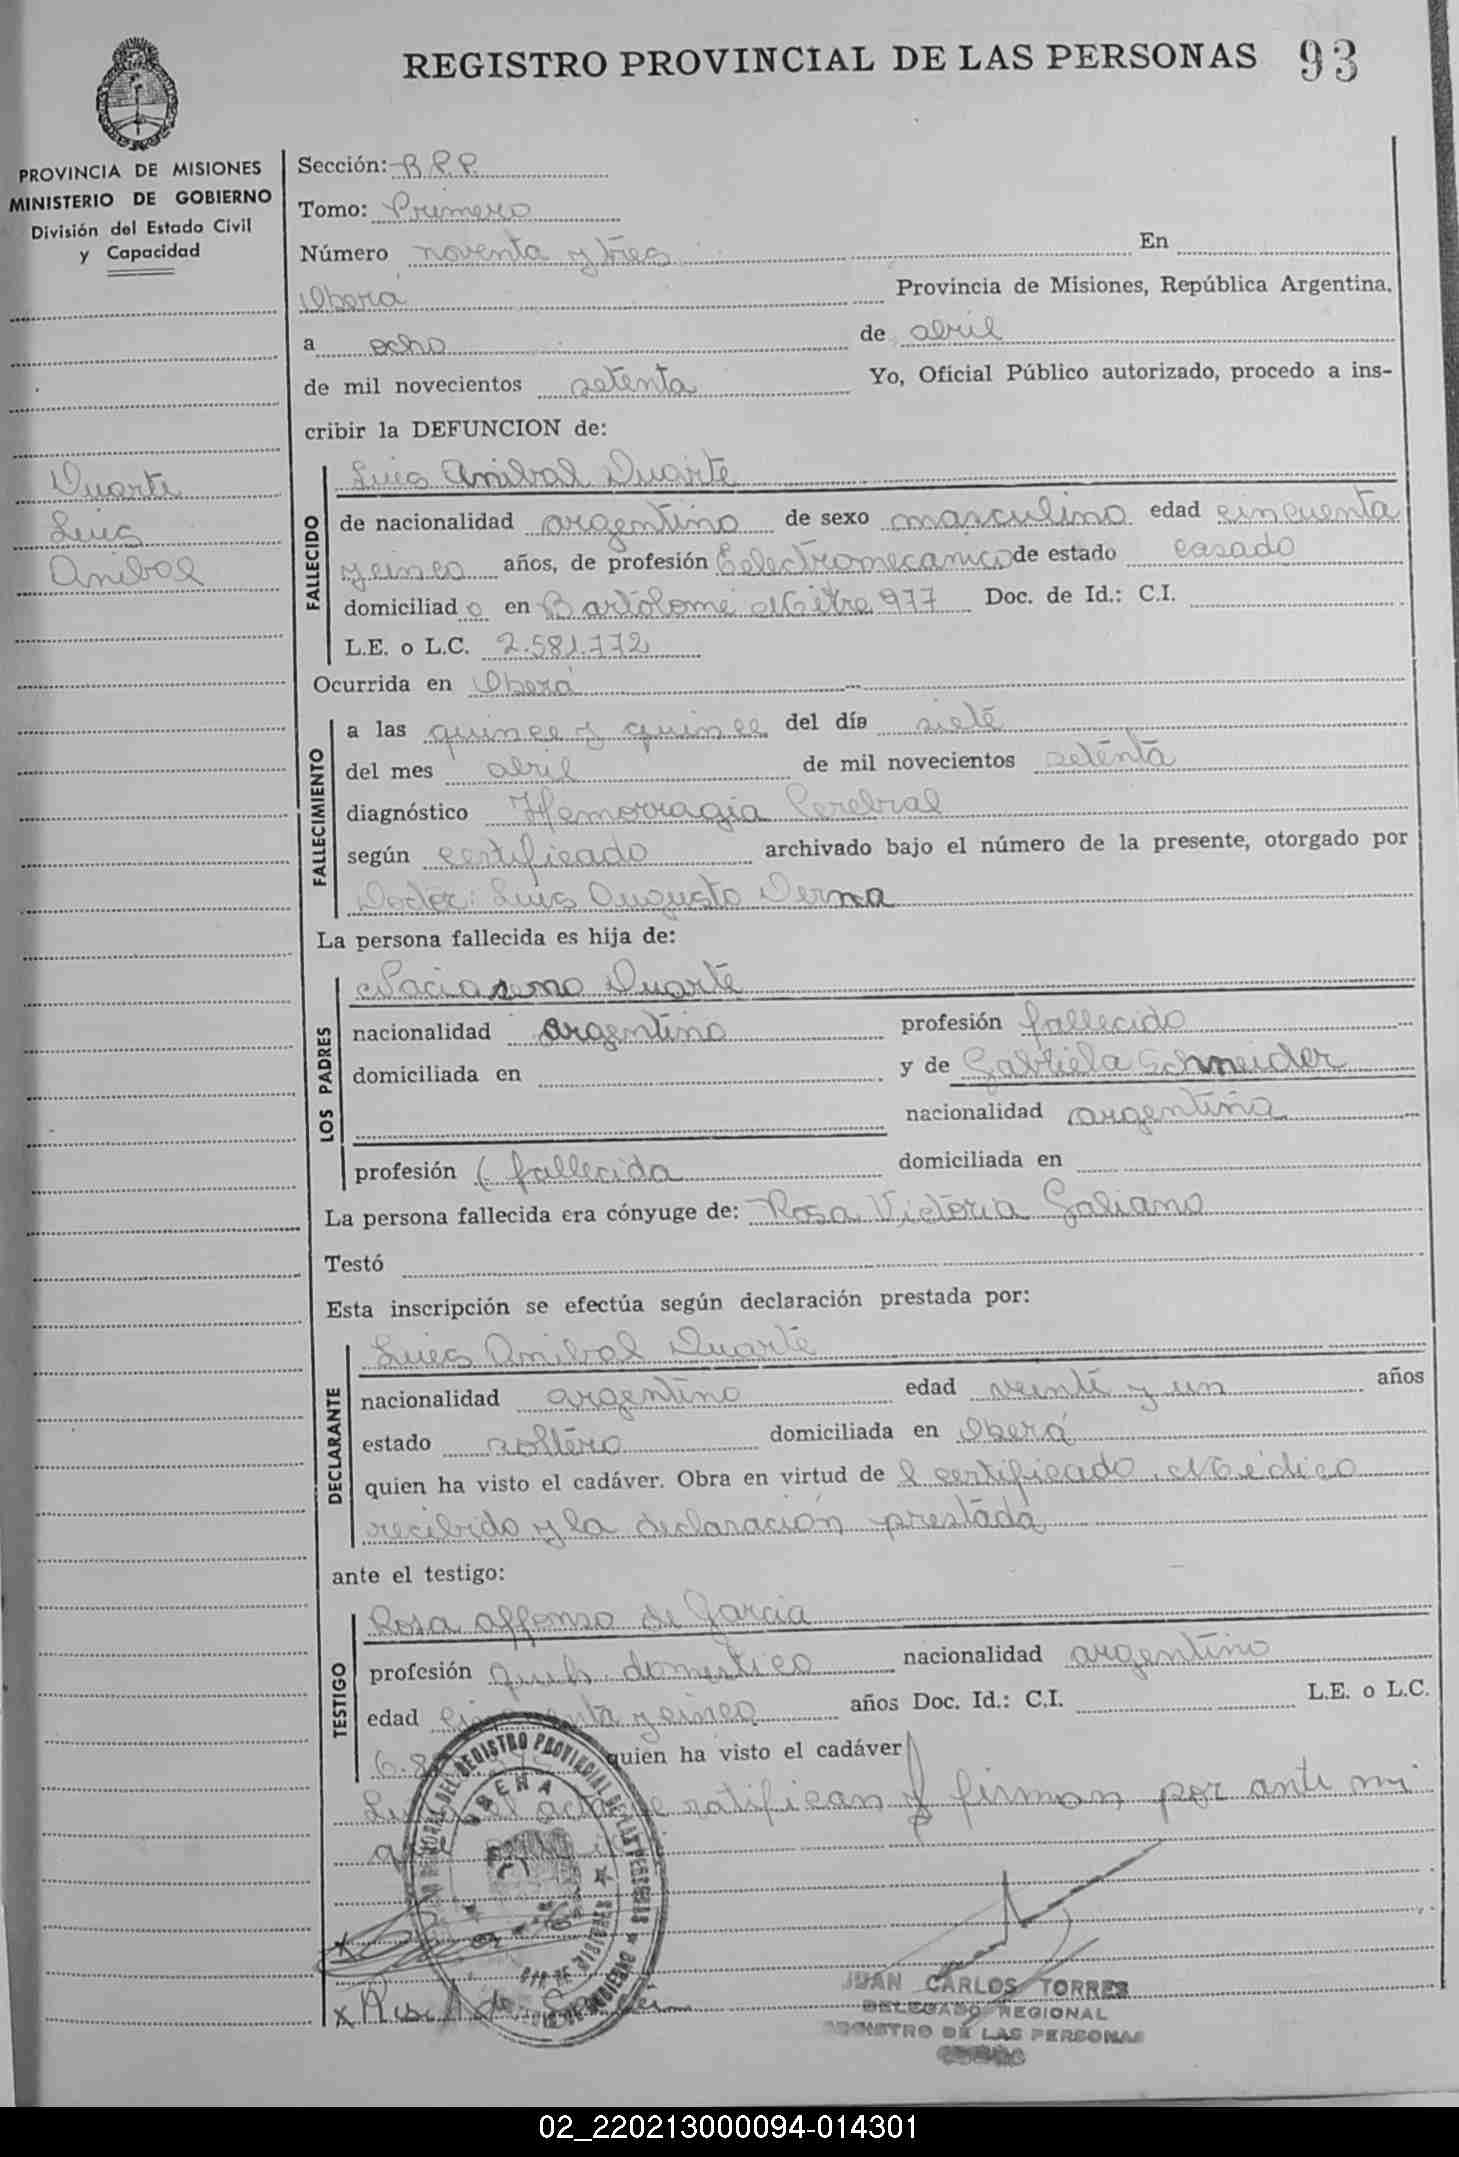 REGISTRO PROVINCIAL DE LAS PERSONAS 93
PROVINCIA DE MISIONES
MINISTERIO DE GOBIERNO
División del Estado Civil
y Capacidad
Duarte
Luis
Anibal
Sección: R.P.P.
Tomo: Primero
Número noventa y tres En
Obera Provincia de Misiones, República Argentina,
a ocho de abril
de mil novecientos setenta Yo, Oficial Público autorizado, procedo a ins-
cribir la DEFUNCION de:
FALLECIDO
Luis Anibal Duarte
de nacionalidad argentino de sexo masculino edad cincuenta
y cinco años, de profesión Eelectromecanico de estado casado
domiciliad o en Bartolome Mitre 977 Doc. de Id.: C.I.
L.E. o L.C. 2.581.772
Ocurrida en Oberá
FALLECIMIENTO
a las quince y quince del día siete
del mes abril de mil novecientos setenta
diagnóstico Hemorragia Cerebral
según certificado archivado bajo el número de la presente, otorgado por
Doctor: Luis Augusto Derna
La persona fallecida es hija de:
LOS PADRES
Duarte
nacionalidad argentino profesión fallecido
domiciliada en y de Gabriela Schneider
nacionalidad argentina
profesión ( fallecida domiciliada en
La persona fallecida era cónyuge de: Rosa Victoria Galiano
Testó
Esta inscripción se efectúa según declaración prestada por:
DECLARANTE
Luis Anibal Duarte
nacionalidad argentino edad veinte y un años
estado soltero domiciliada en Oberá
quien ha visto el cadáver. Obra en virtud de l certificado Médico
recibido y la declaración prestada
ante el testigo:
TESTIGO
Rosa Affonso de Garcia
profesión domestico nacionalidad argentino
edad y cinco años Doc. Id.: C.I. L.E. o L.C.
quien ha visto el cadáver
ratifican y firman por ante mi
JUAN CARLOS TORRES
DELEGADO REGIONAL
REGISTRO DE LAS PERSONAS
02_220213000094-014301